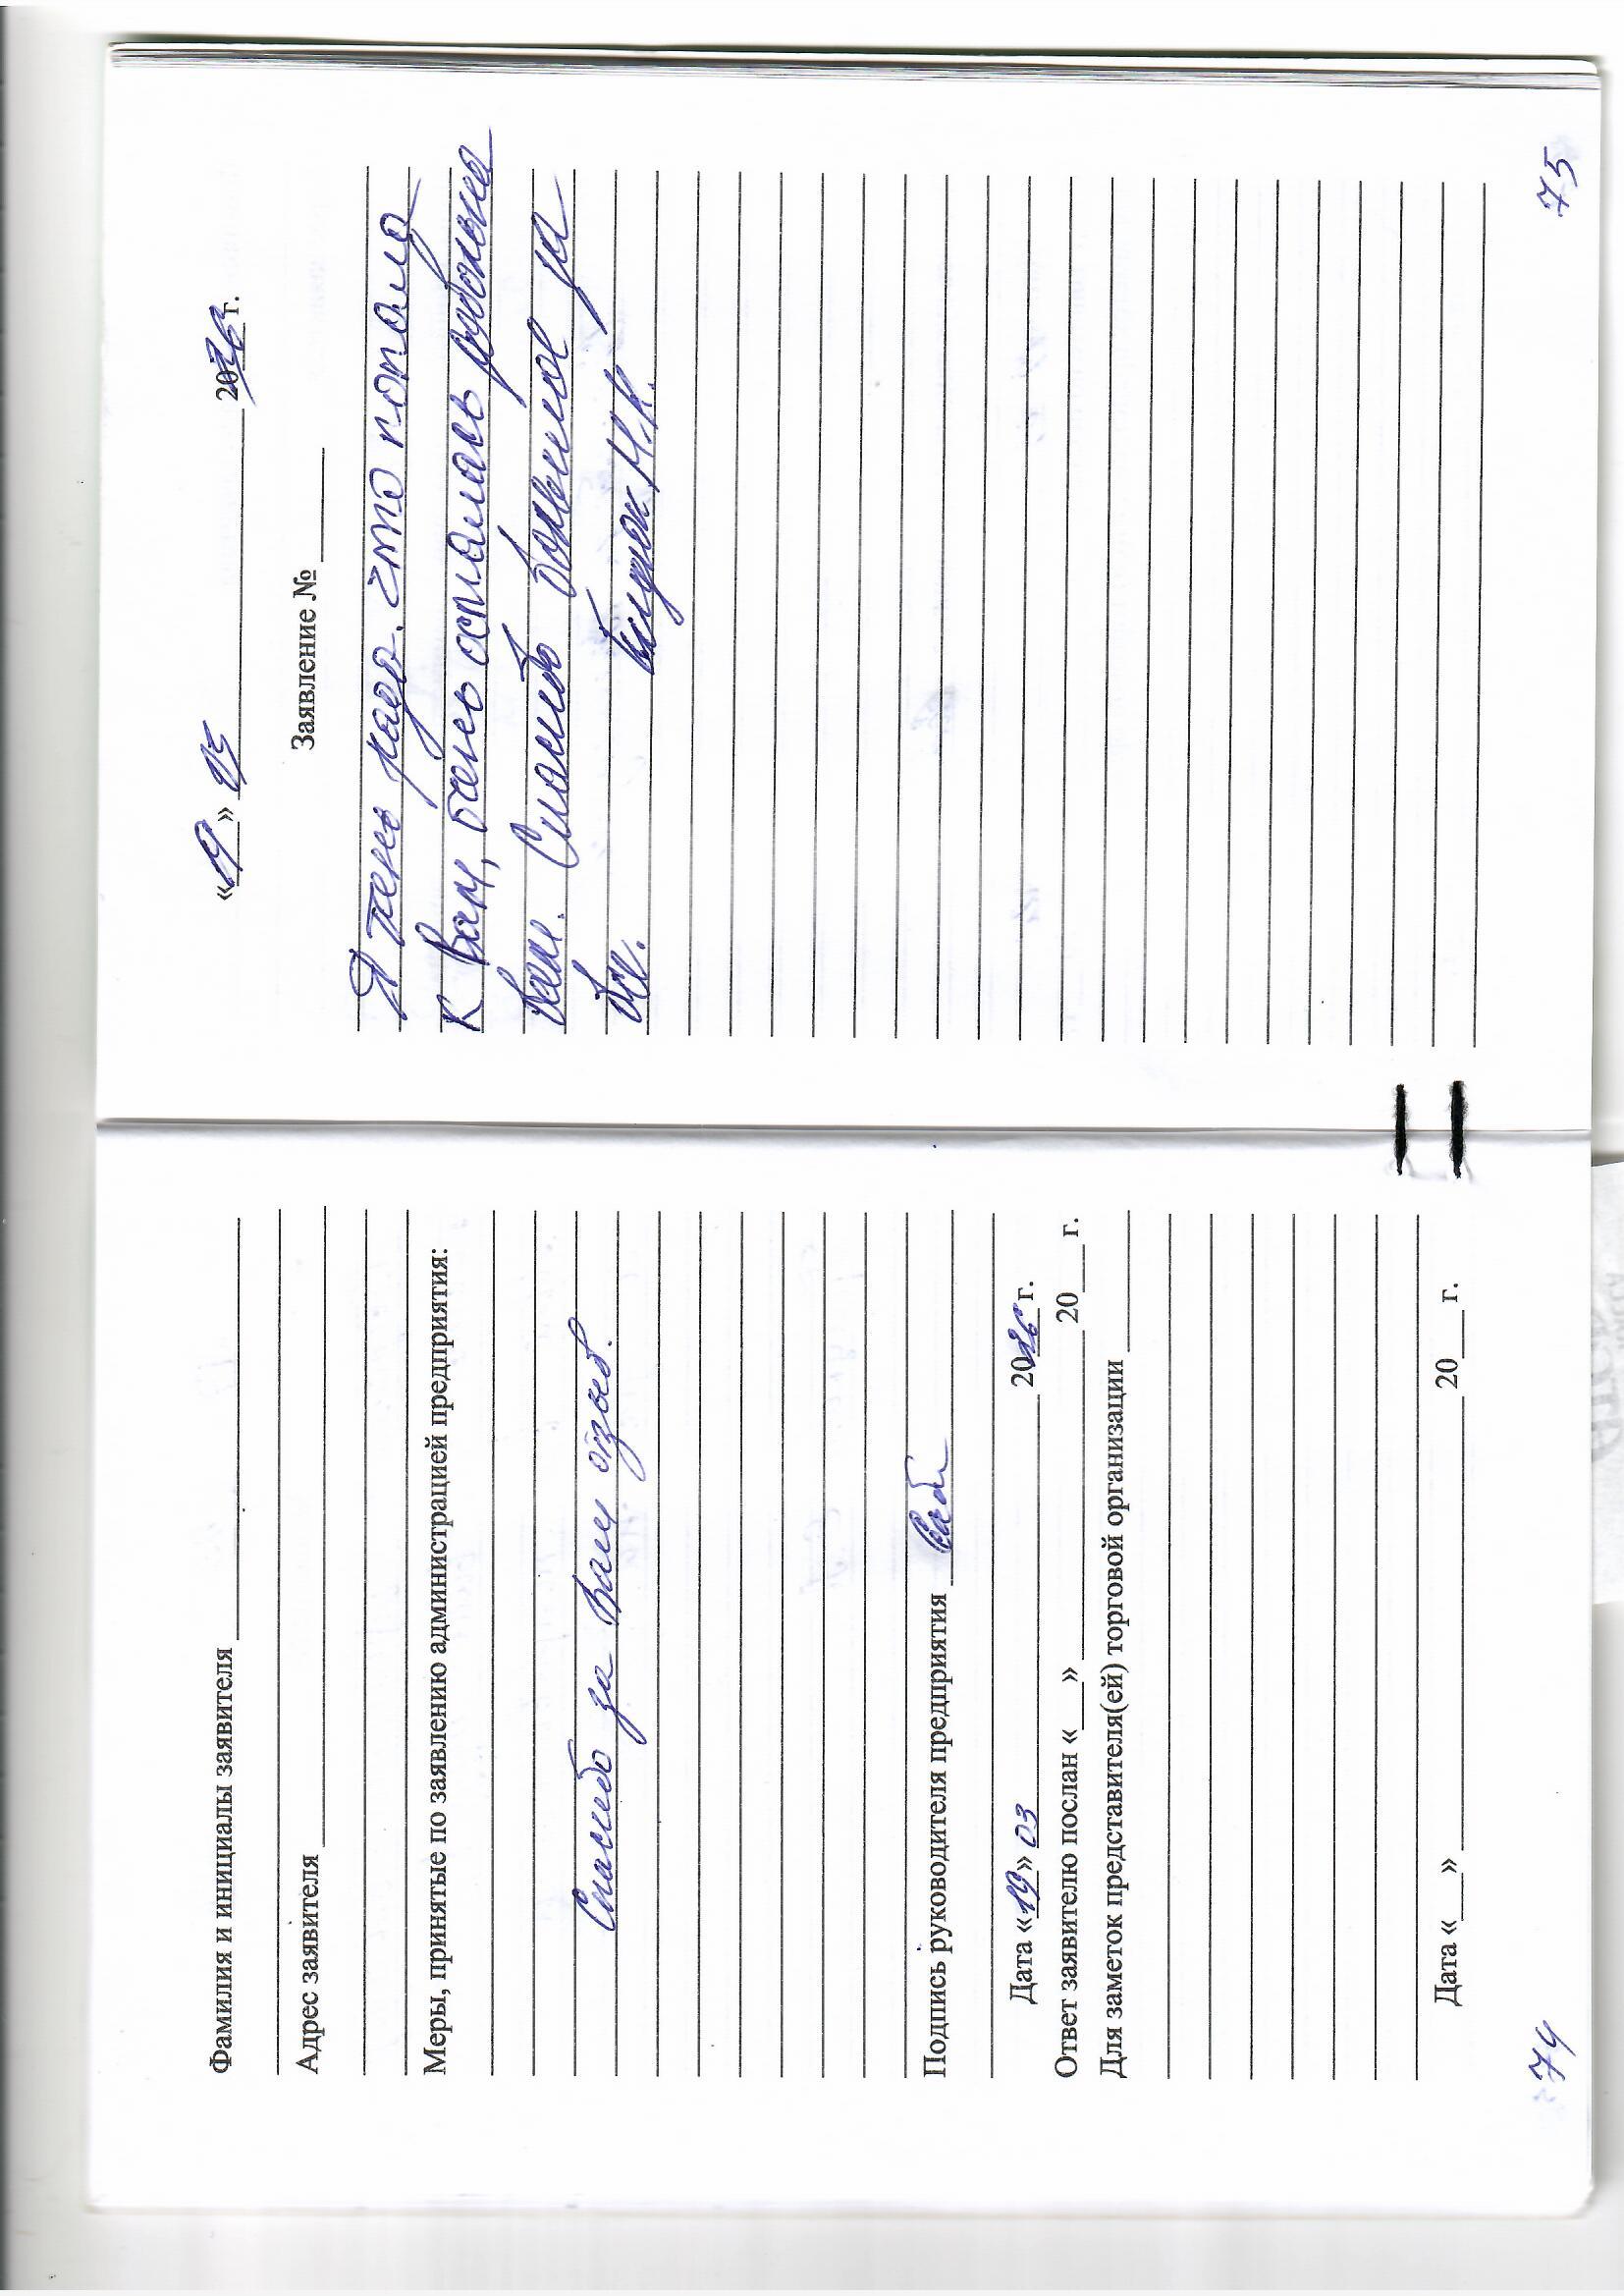 Фамилия и инициалы заявителя
Адрес заявителя
Меры, принятые по заявлению администрацией предприятия:
Спасибо за Ваш отзыв.
Подпись руководителя предприятия
Дата «19» 03 2026 г.
Ответ заявителю послан «___» 20___г.
Для заметок представителя(ей) торговой организации
Дата «___» 20___г.
74
«19» 2026 г.
Заявление №
Я рада, что попала
к Вам, очень осталась довольна
Вами. Спасибо большое за
все. М.К.
75